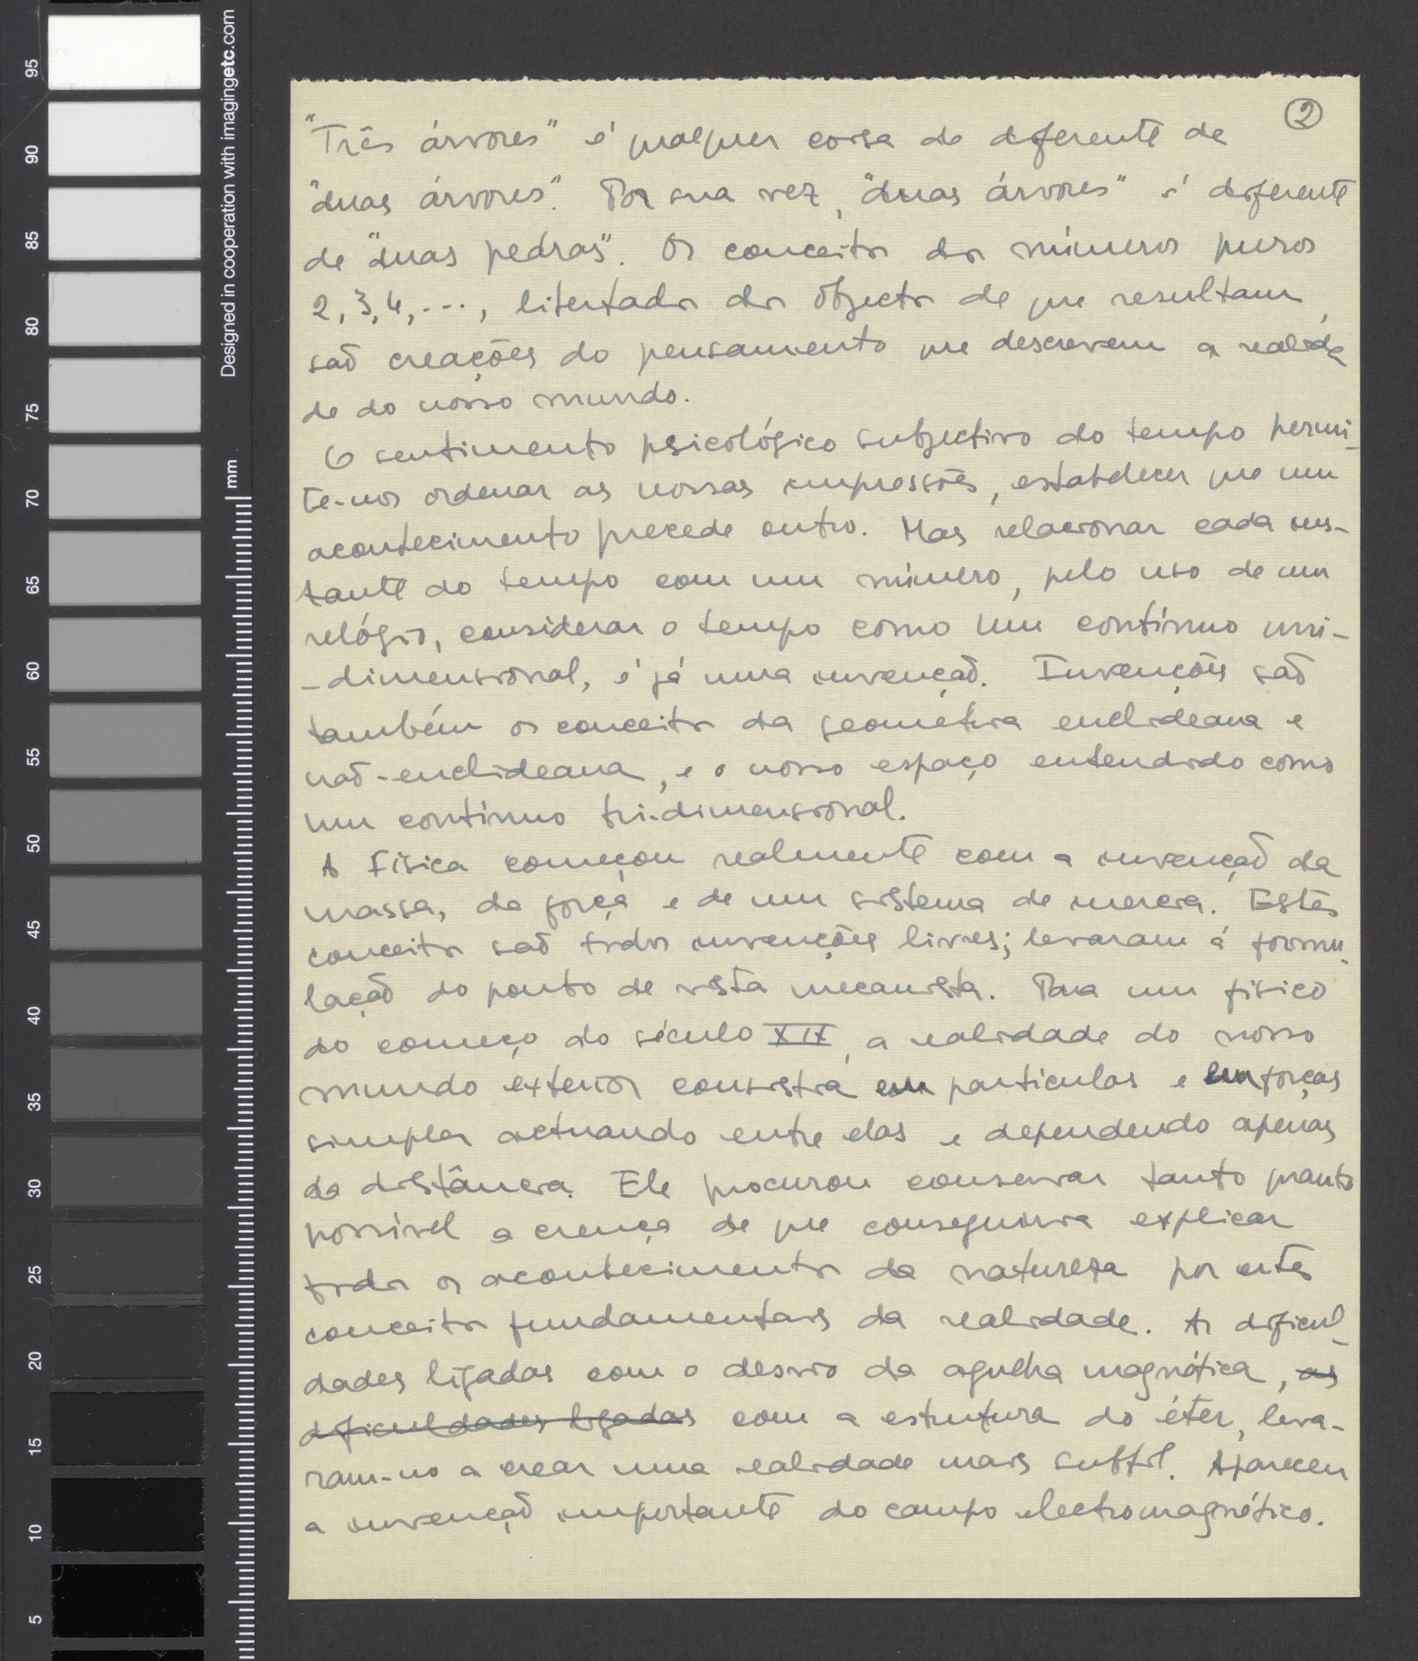 2
"Três árvores" é qualquer coisa de diferente de
"duas árvores". Por sua vez, "duas árvores" é diferente
de "duas pedras". Os conceitos dos números puros
2, 3, 4, ..., libertados dos objectos de que resultam,
são creações do pensamento que descrevem a realida
de do nosso mundo.
O sentimento psicológico subjectivo do tempo permi-
te-nos ordenar as nossas impressões, estabelecer que um
acontecimento precede outro. Mas relacionar cada ins-
tante do tempo com um número, pelo uso de um
relógio, considerar o tempo como um contínuo uni-
-dimensional, é já uma invenção. Invenções são
também os conceitos da geometria euclideana e
não-euclideana, e o nosso espaço entendido como
um contínuo tri-dimensional.
A Física começou realmente com a invenção da
massa, da força e de um sistema de inércia. Estes
conceitos são todos invenções livres; levaram à formu-
lação do ponto de vista mecanista. Para um físico
do começo do século XIX, a realidade do nosso
mundo exterior consistia em partículas e em forças
simples actuando entre elas e dependendo apenas
da distância. Ele procurou conservar tanto quanto
possível a crença de que conseguiria explicar
todos os acontecimentos da natureza por estes
conceitos fundamentais da realidade. As dificul-
dades ligadas com o desvio da agulha magnética, as
dificuldades ligadas com a estrutura do éter, leva-
ram-no a crear uma realidade mais subtil. Apareceu
a invenção importante do campo electromagnético.
95
90
85
80
75
70
65
60
55
50
45
40
35
30
25
20
15
10
5
mm
Designed in cooperation with imagingetc.com